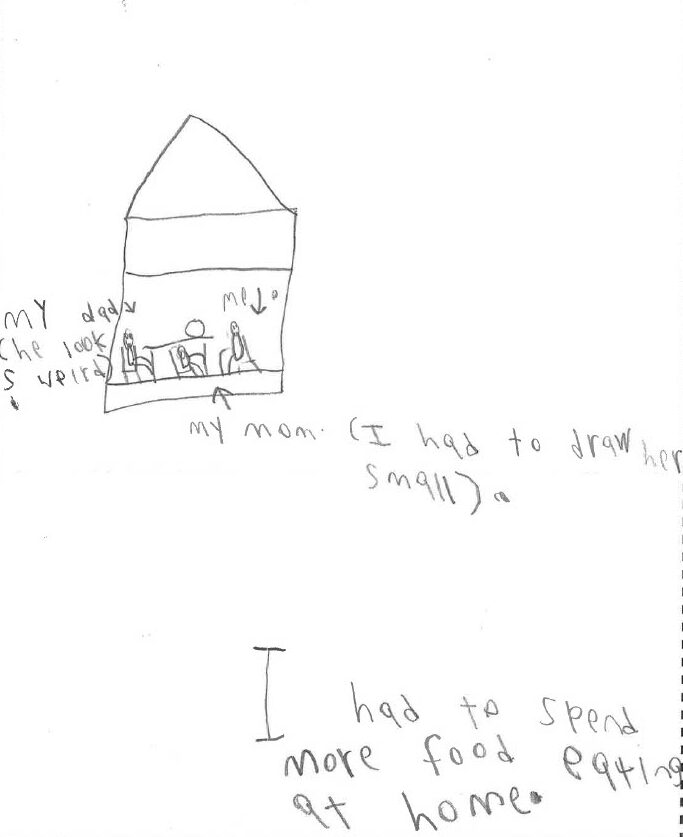 my dad
me
(he look
s weird)
my mom. (I had to draw her
small).
I had to spend
more food eating
at home.